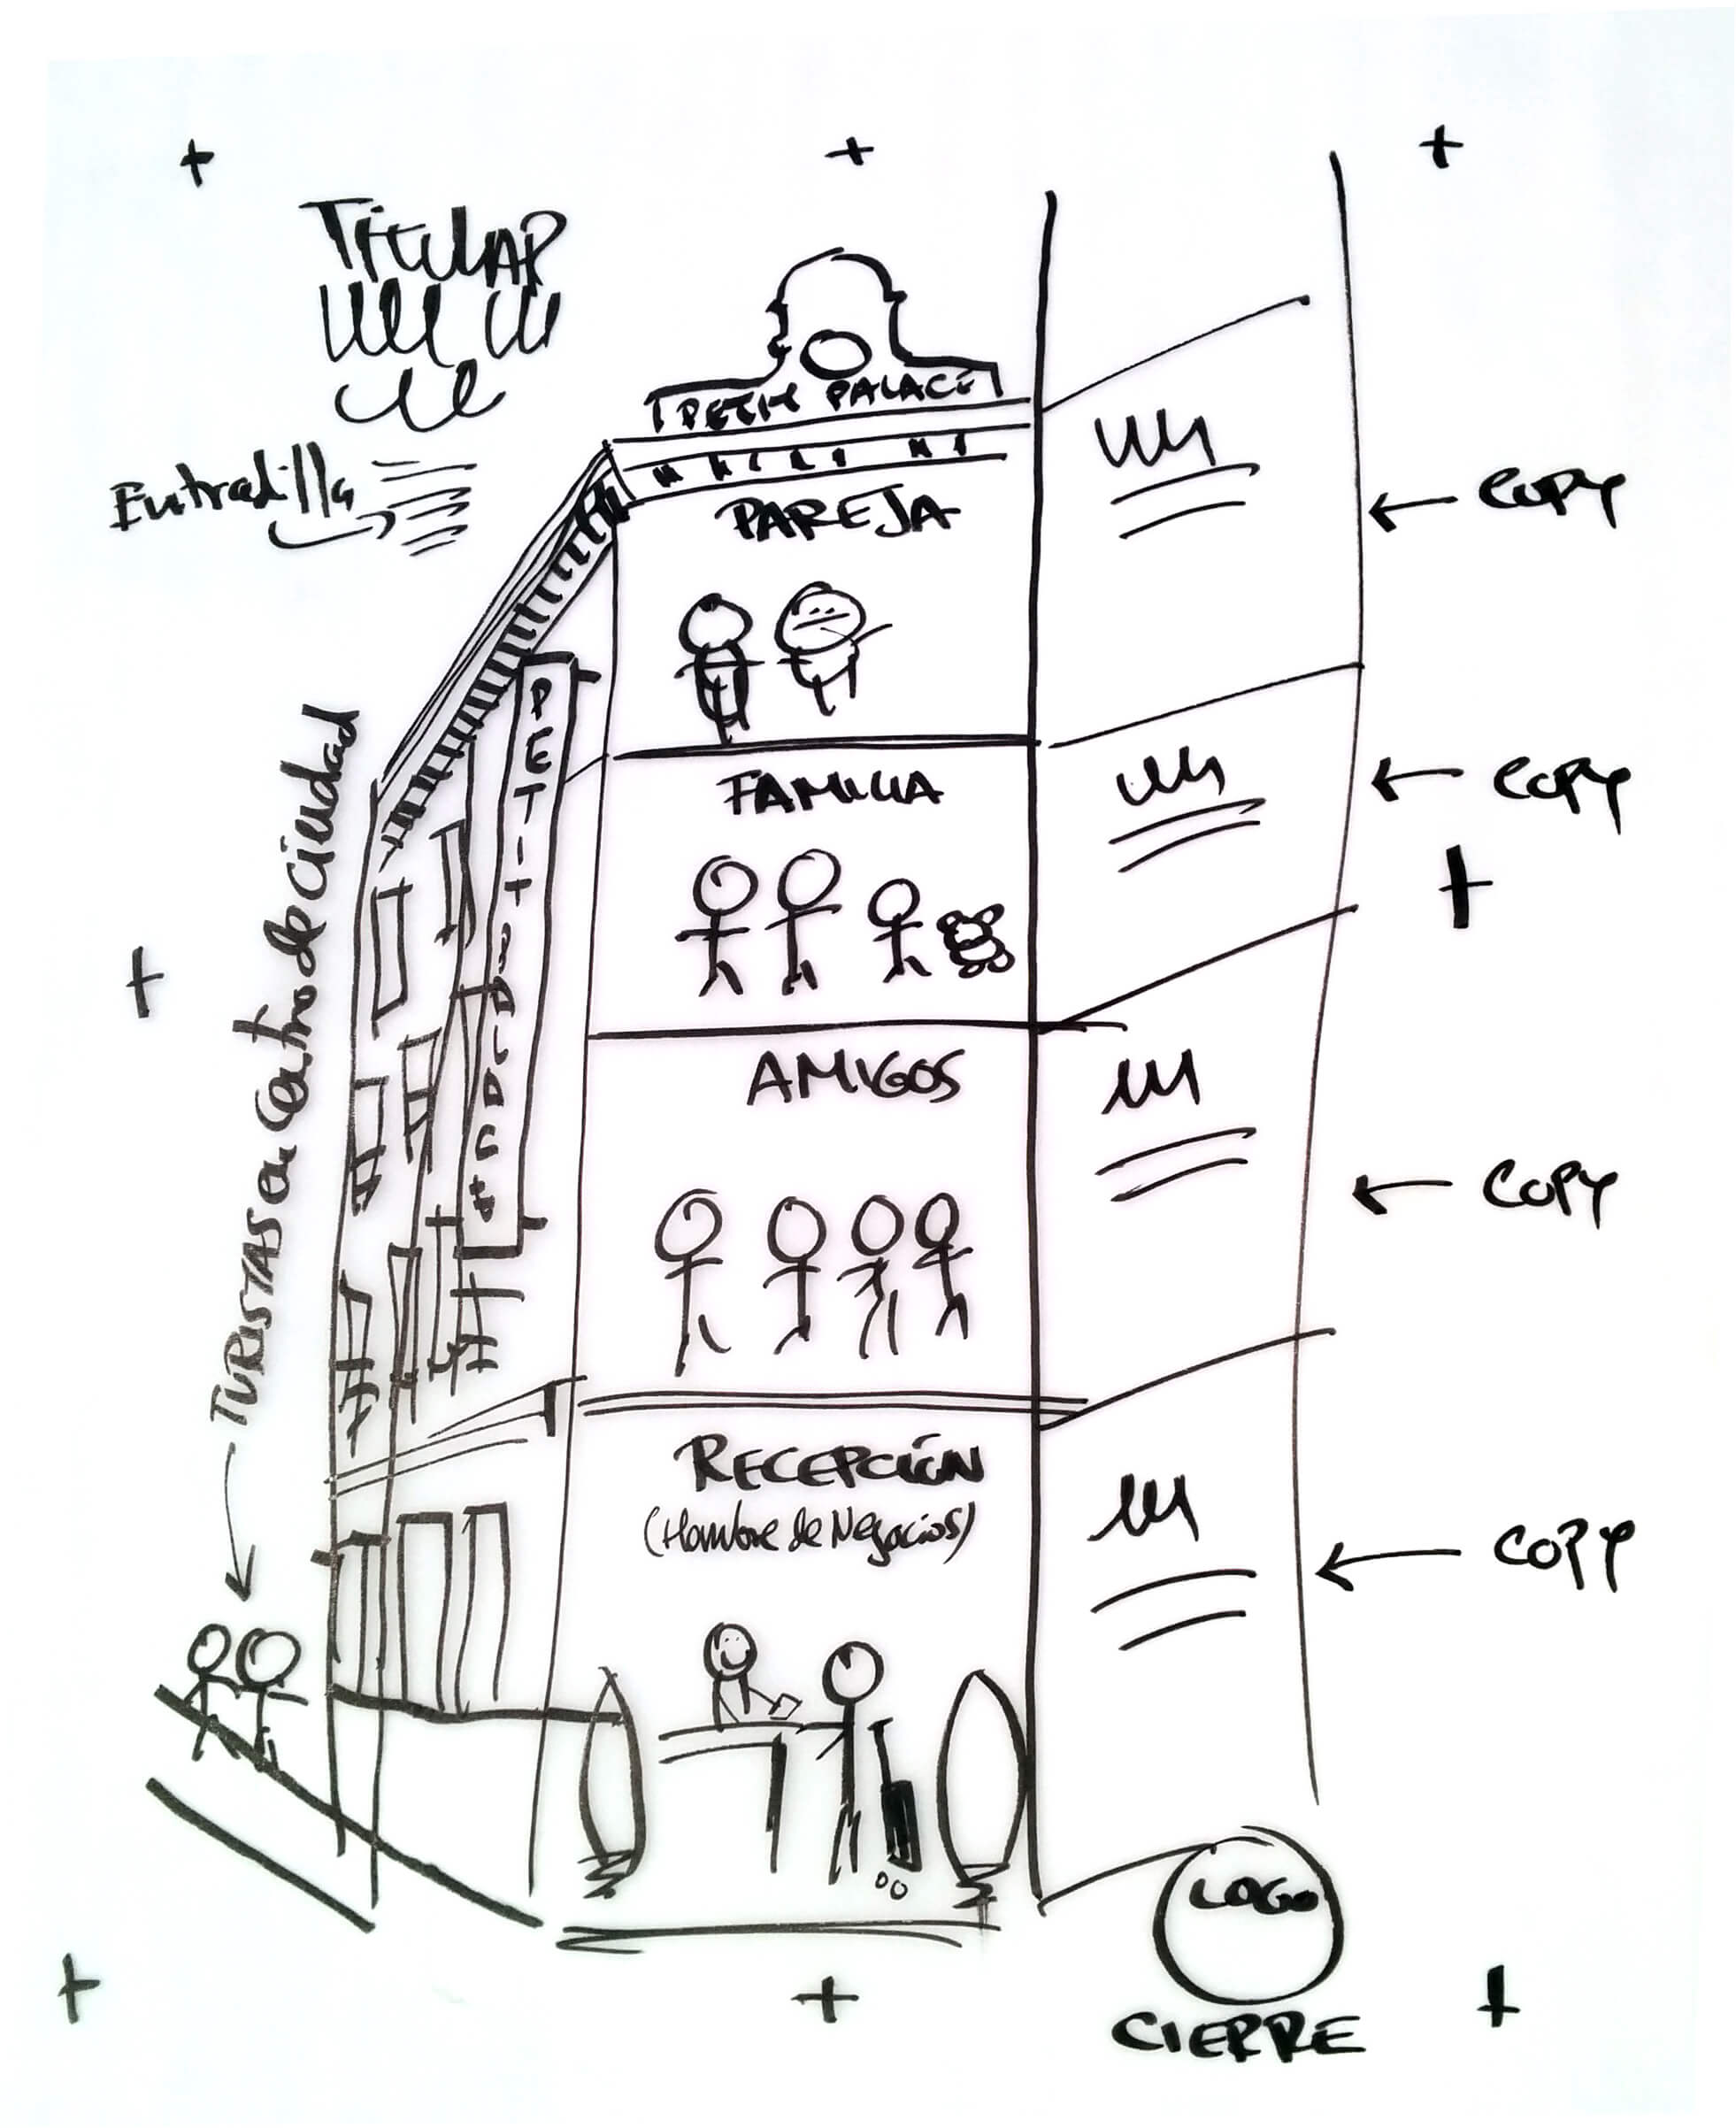 Titular
Entradilla
PETIT PALACE
PAREJA
COPY
PETIT PALACE
FAMILIA
COPY
Turistas en Centro de Ciudad
AMIGOS
COPY
RECEPCIÓN
(Hombre de Negocios)
COPY
LOGO
CIERRE